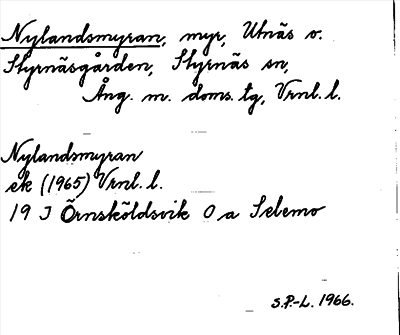 Nylandsmyran, myr, Utnäs o.
Styrnäsgården, Styrnäs sn,
Ång. m. doms. tg, Vrnl. l.
Nylandsmyran
ek (1965) Vrnl. l.
19 J Örnsköldsvik 0 a Selemo
S.P.-L. 1966.